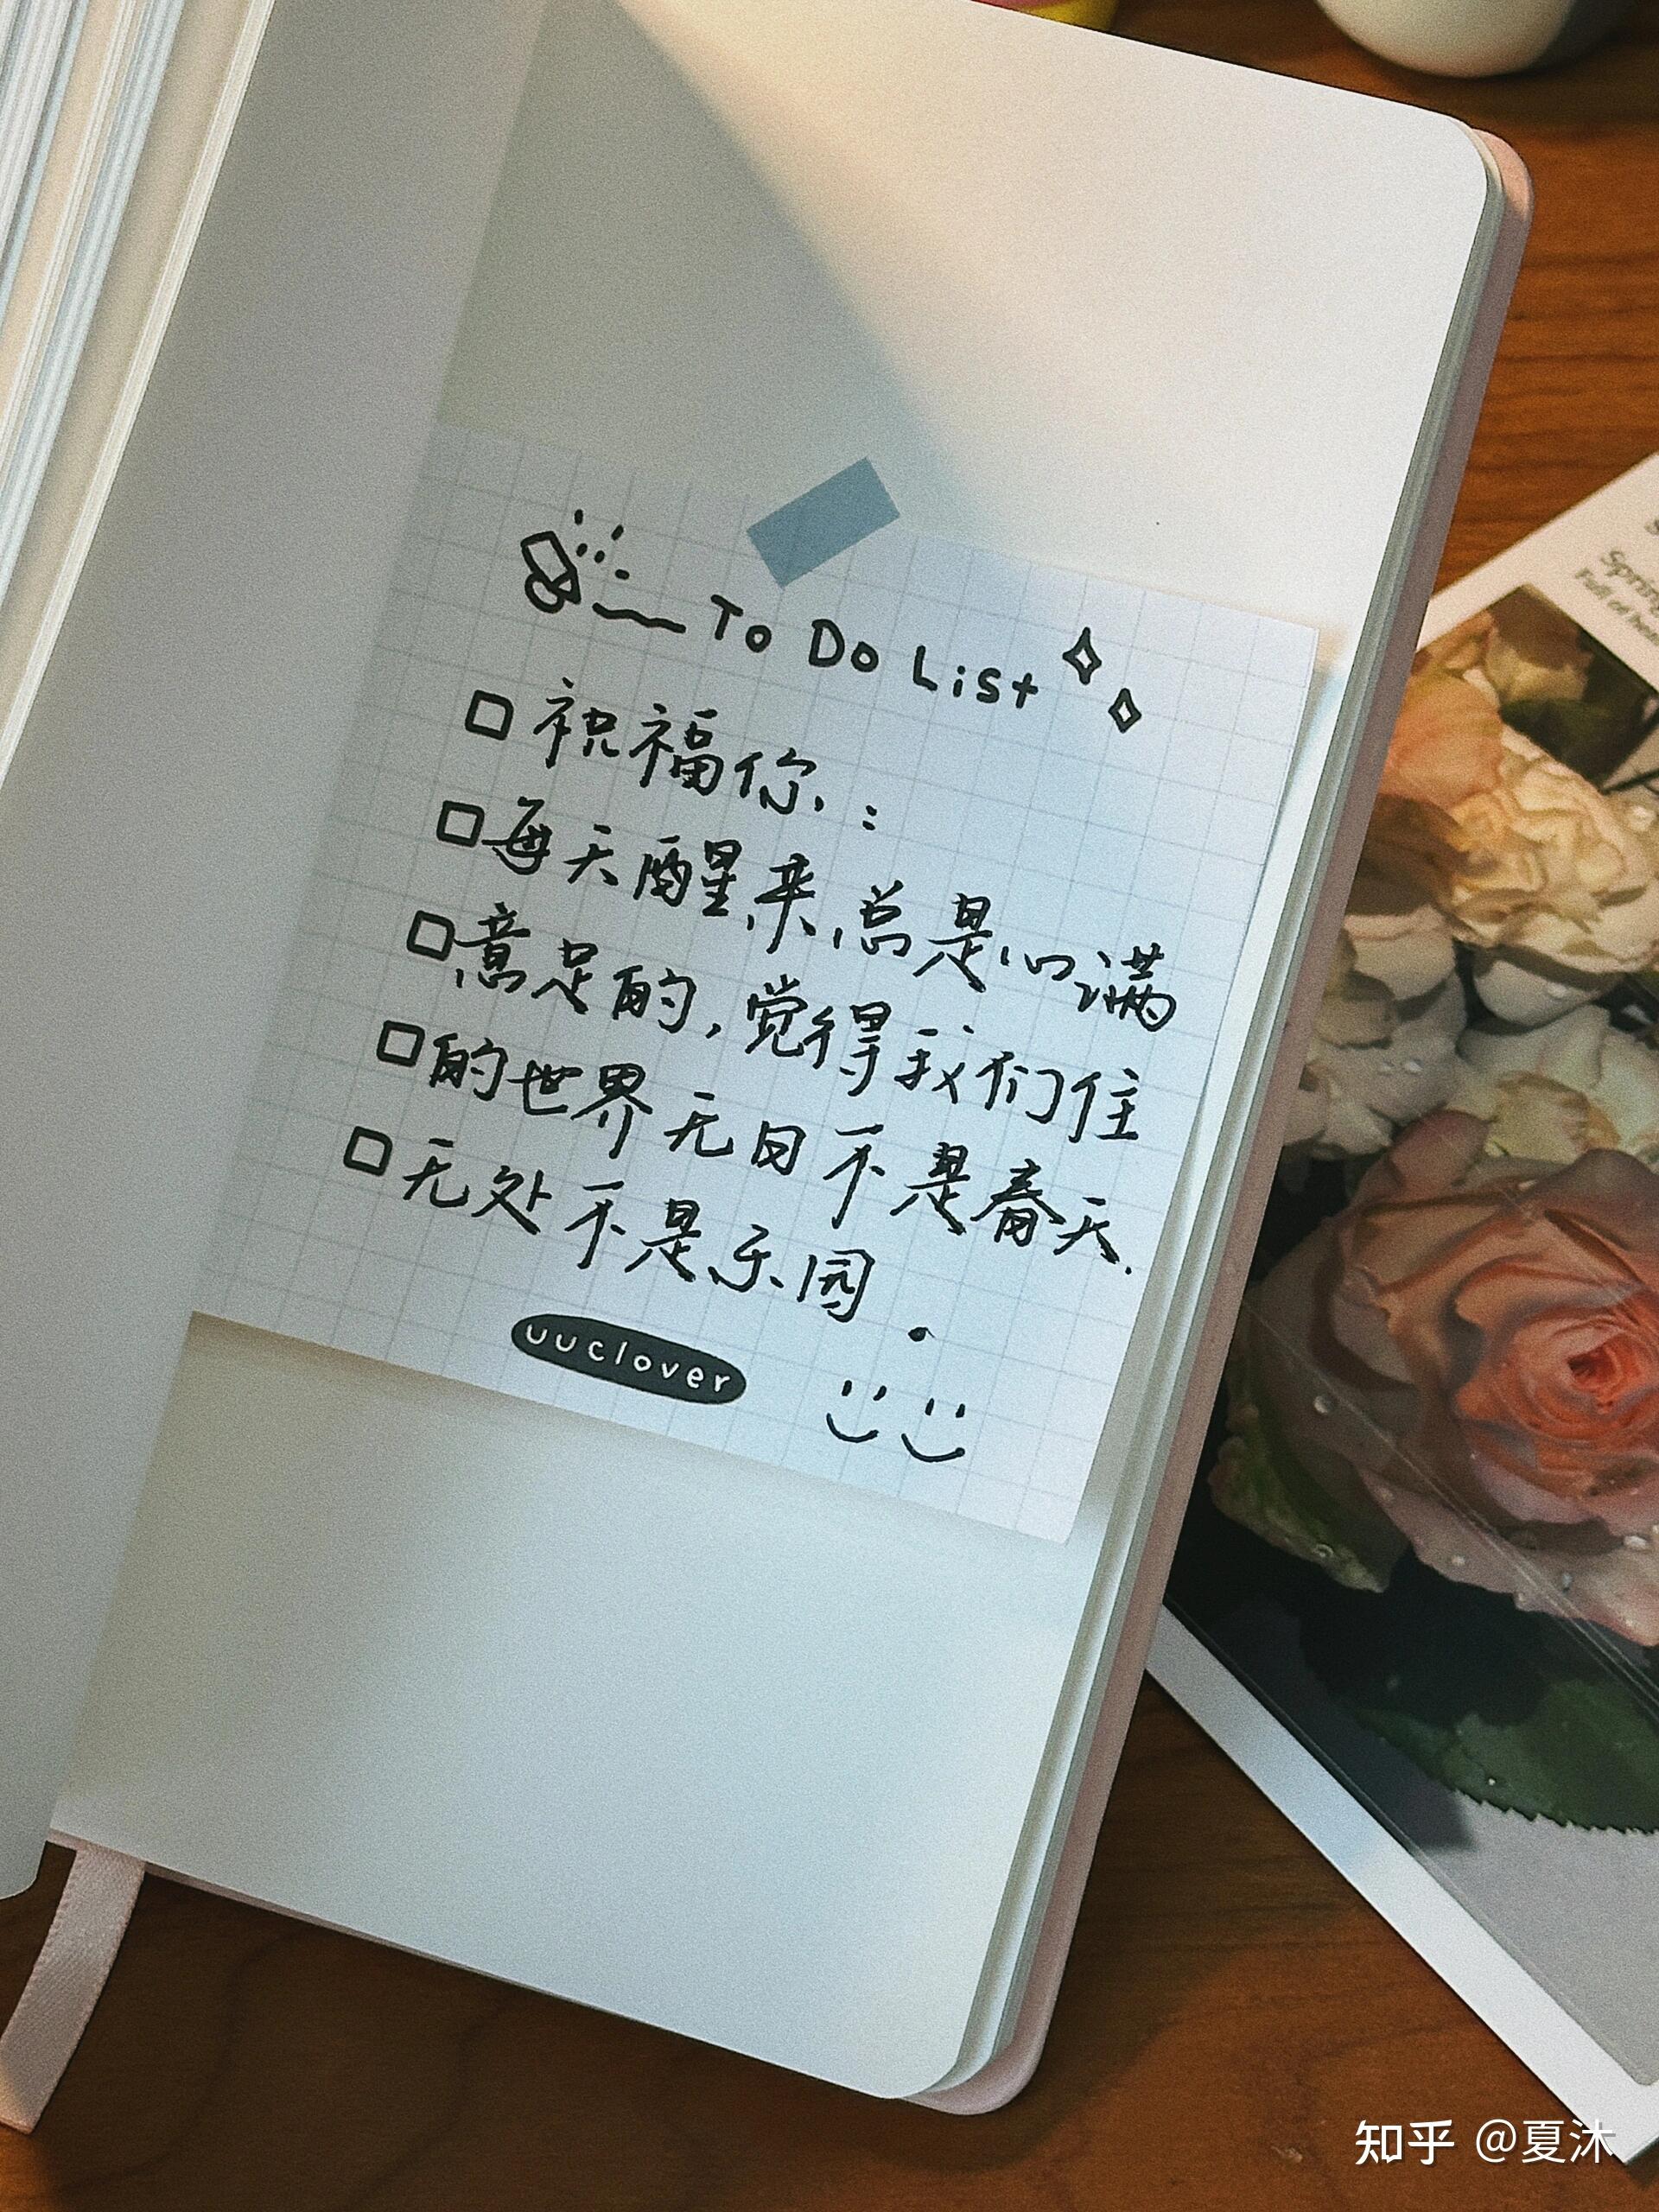 To Do List
祝福你：
每天醒来，总是心满
意足的，觉得我们住
的世界无日不是春天.
无处不是乐园。
uuclover
Spring
Full of
知乎 @夏沐